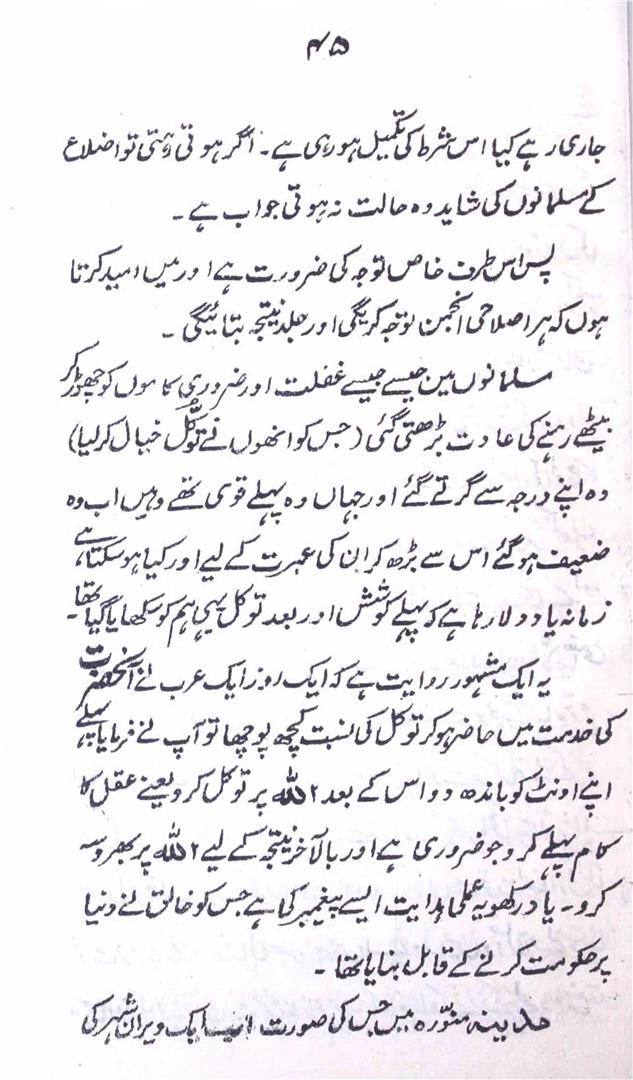 ۴۵
جاری رہے کیا اس شرط کی تکمیل ہو رہی ہے۔ اگر ہوتی رہتی تو اضلاع
کے مسلمانوں کی شاید وہ حالت نہ ہوتی جو اب ہے۔
پس اس طرف خاص توجہ کی ضرورت ہے اور میں امید کرتا
ہوں کہ ہر اصلاحی انجمن توجہ کریگی اور جلد نتیجہ بتائیگی۔
مسلمانوں مین جیسے جیسے غفلت اور ضروری کاموں کو چھوڑ کر
بیٹھے رہنے کی عادت بڑھتی گئی (جس کو انھوں نے توکّل خیال کر لیا)
وہ اپنے درجہ سے گرتے گئے اور جہاں وہ پہلے قوی تھے وہیں اب وہ
ضعیف ہو گئے اس سے بڑھ کر ان کی عبرت کے لیے اور کیا ہو سکتا ہے
زمانہ یاد دلا رہا ہے کہ پہلے کوشش اور بعد توکل یہی ہم کو سکھایا گیا تھا۔
یہ ایک مشہور روایت ہے کہ ایک روز ایک عرب نے آنحضرت
کی خدمت میں حاضر ہو کر توکل کی نسبت کچھ پوچھا تو آپ نے فرمایا پہلے
اپنے اونٹ کو باندھ دو اس کے بعد اللہ پر توکل کرو یعنے عقل کا
کام پہلے کرو جو ضروری ہے اور بالآخر نتیجہ کے لیے اللہ پر بھروسہ
کرو۔ یاد رکھو یہ عملی ہدایت ایسے پیغمبر کی ہے جس کو خالق نے دنیا
پر حکومت کرنے کے قابل بنایا تھا۔
مدینہ منوّرہ میں جس کی صورت اب ایک ویران شہر کی